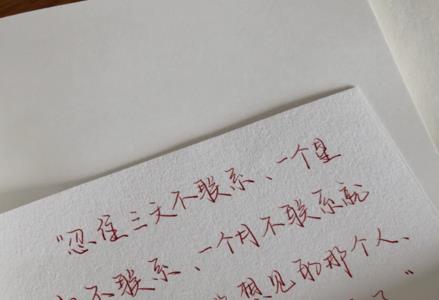 “忍住三天不联系、一个星
不联系、一个月不联系就
想见的那个人、
”